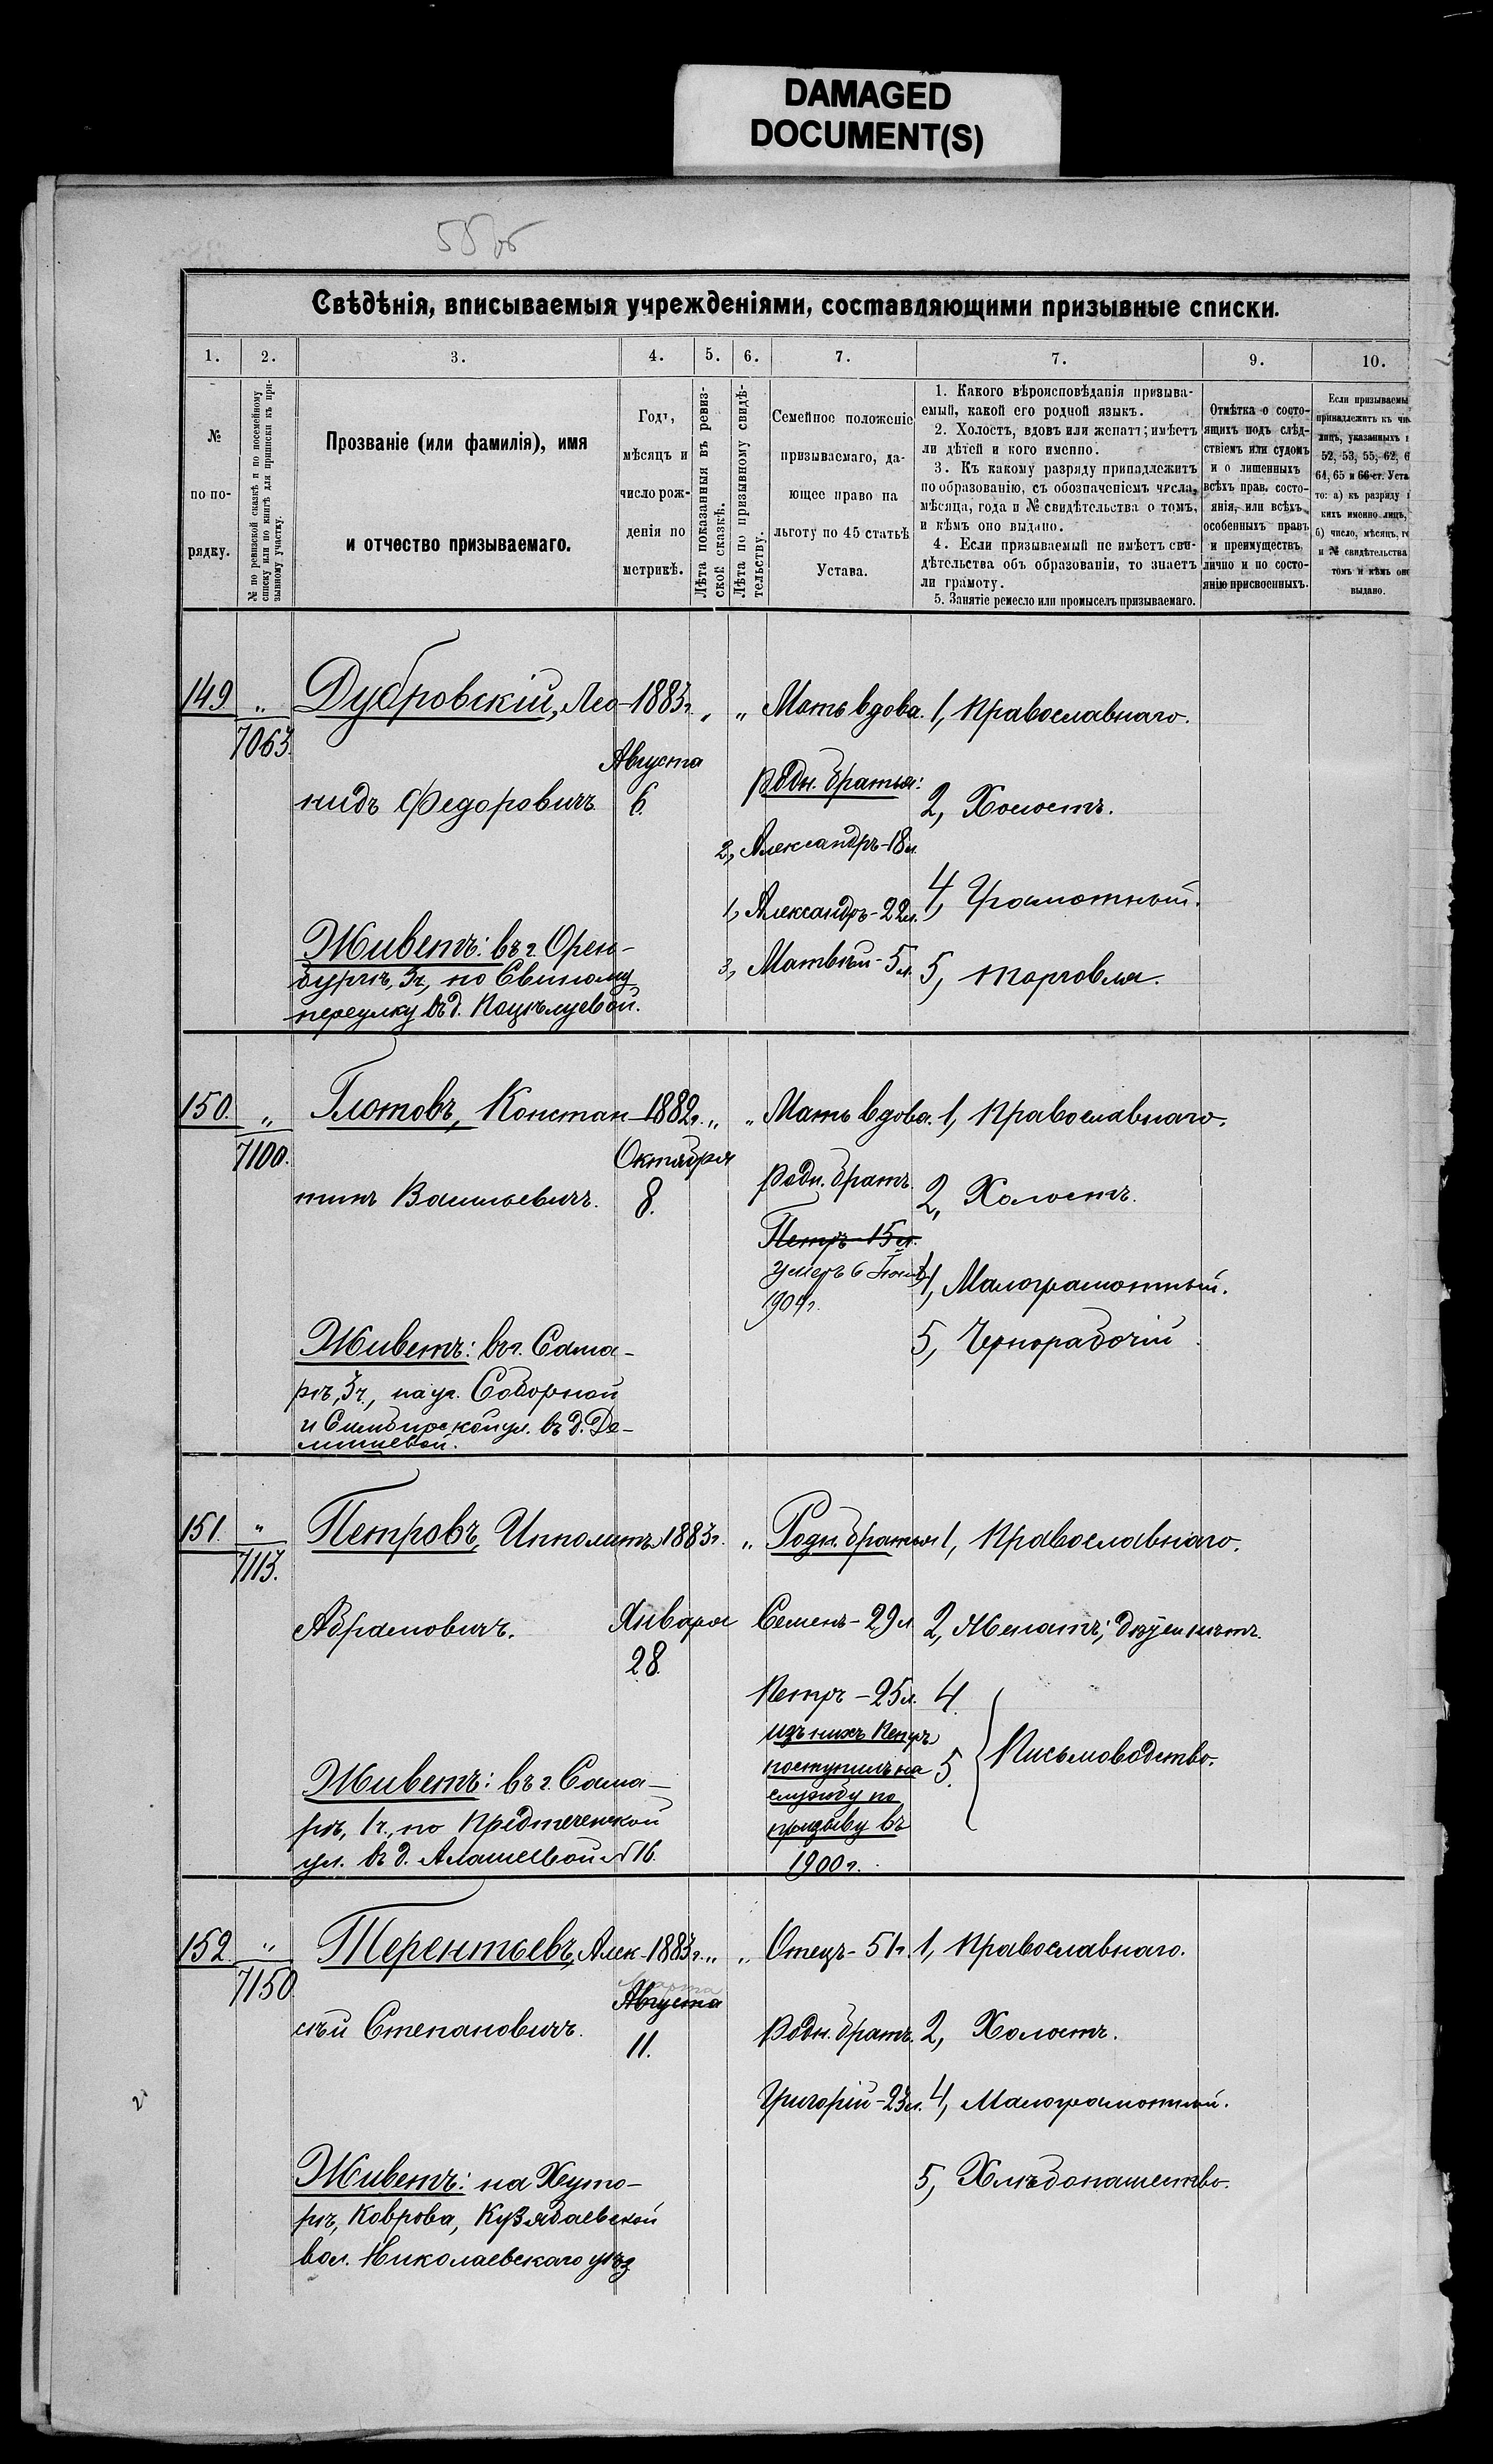 DAMAGED
DOCUMENT(S)
Свѣдѣнія, вписываемыя учрежденіями, составляющими призывные списки.
1. 2. 3. 4. 5. 6. 7. 7. 9. 10.
№
по по-
рядку.
№ по ревизской сказкѣ и по посемейному
списку или по книгѣ для приписки къ при-
зывному участку.
Прозваніе (или фамилія), имя
и отчество призываемаго.
Годъ,
мѣсяцъ и
число рож-
денія по
метрикѣ.
Лѣта показанныя въ ревиз-
ской сказкѣ.
Лѣта по призывному свидѣ-
тельству.
Семейное положеніе
призываемаго, да-
ющее право на
льготу по 45 статьѣ
Устава.
1. Какого вѣроисповѣданія призыва-
емый, какой его родной языкъ.
2. Холостъ, вдовъ или женатъ; имѣетъ
ли дѣтей и кого именно.
3. Къ какому разряду принадлежитъ
по образованію, съ обозначеніемъ числа,
мѣсяца, года и № свидѣтельства о томъ,
и кѣмъ оно выдано.
4. Если призываемый не имѣетъ сви-
дѣтельства объ образованіи, то знаетъ
ли грамоту.
5. Занятіе ремесло или промыселъ призываемаго.
Отмѣтка о состо-
ящихъ подъ слѣд-
ствіемъ или судомъ
и о лишенныхъ
всѣхъ прав. состо-
янія, или всѣхъ
особенныхъ правъ
и преимуществъ,
лично и по состо-
янію присвоенныхъ.
Если призываемы
принадлежитъ къ чи
лицъ, указанныхъ
52, 53, 55, 62, 6
64, 65 и 66 ст. Уста
то: а) къ разряду
кихъ именно лицъ,
б) число, мѣсяцъ, г
и № свидѣтельства
томъ и кѣмъ оно
выдано.
149 " Дубровскій, Лео- 1883г. " " Мать вдова. 1, Православнаго.
7063.
Августа
нидъ Федоровичъ 6.
Родн. братья:
2, Холостъ.
2, Александръ-18л.
1, Александръ-22л. 4, Грамотный.
3, Матвѣй-5л. 5, торговля.
Живетъ: въ г. Орен-
бургѣ, 3ч, по Свиному
переулку въ д.
150. " Глотовъ, Констан- 1882г. " " Мать вдова. 1, Православнаго.
7100. Октября
тинъ Васильевичъ. 8.
Родн. братъ. 2, Холостъ.
Петръ-15л.
умеръ 6
1904г.
4, Малограмотный.
5, Чернорабочій
Живетъ: въ г. Сама-
рѣ, 3ч., на уг. Соборной
и Симбирской ул. въ д. Де-
151. " Петровъ, Ипполитъ 1883г. " Родн. братья 1, Православнаго.
7113.
Абрамовичъ. Января Семенъ-29л 2, Женатъ; дѣтей нѣтъ.
28.
Петръ-25л. 4.
изъ нихъ Петръ
поступилъ на 5. Письмоводство.
службу по
призыву въ
1900г.
Живетъ: въ г. Сама-
рѣ, 1ч., по Предтеченской
ул. въ д. Алашеевой №16.
152 " Терентьевъ, Алек- 1883г. " " Отецъ-51г. 1, Православнаго.
7150. Марта
Августа
сѣй Степановичъ. 11. Родн. братъ. 2, Холостъ.
Григорій-23л. 4, Малограмотный.
5, Хлѣбопашество.
Живетъ: на Хуто-
рѣ, Коврова, Кузябаевской
вол. Николаевскаго уѣз